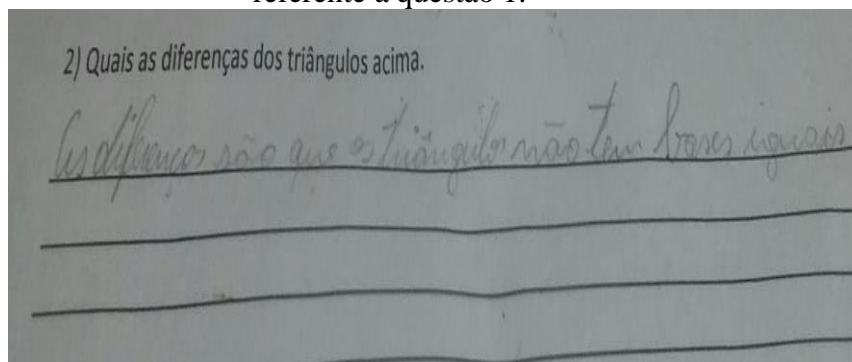 referente à questão 1.
2) Quais as diferenças dos triângulos acima.
As diferenças são que os triângulos não tem bases iguais